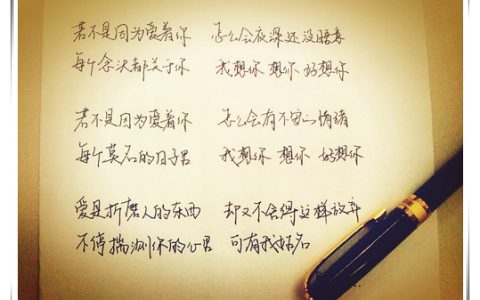 若不是因为爱着你 怎么会夜深还没睡意
每个念头都关于你 我想你 想你 好想你
若不是因为爱着你 怎么会有不安的情绪
每个莫名的日子里 我想你 想你 好想你
爱是折磨人的东西 却又舍不得这样放弃
不停揣测你的心里 可有我姓名